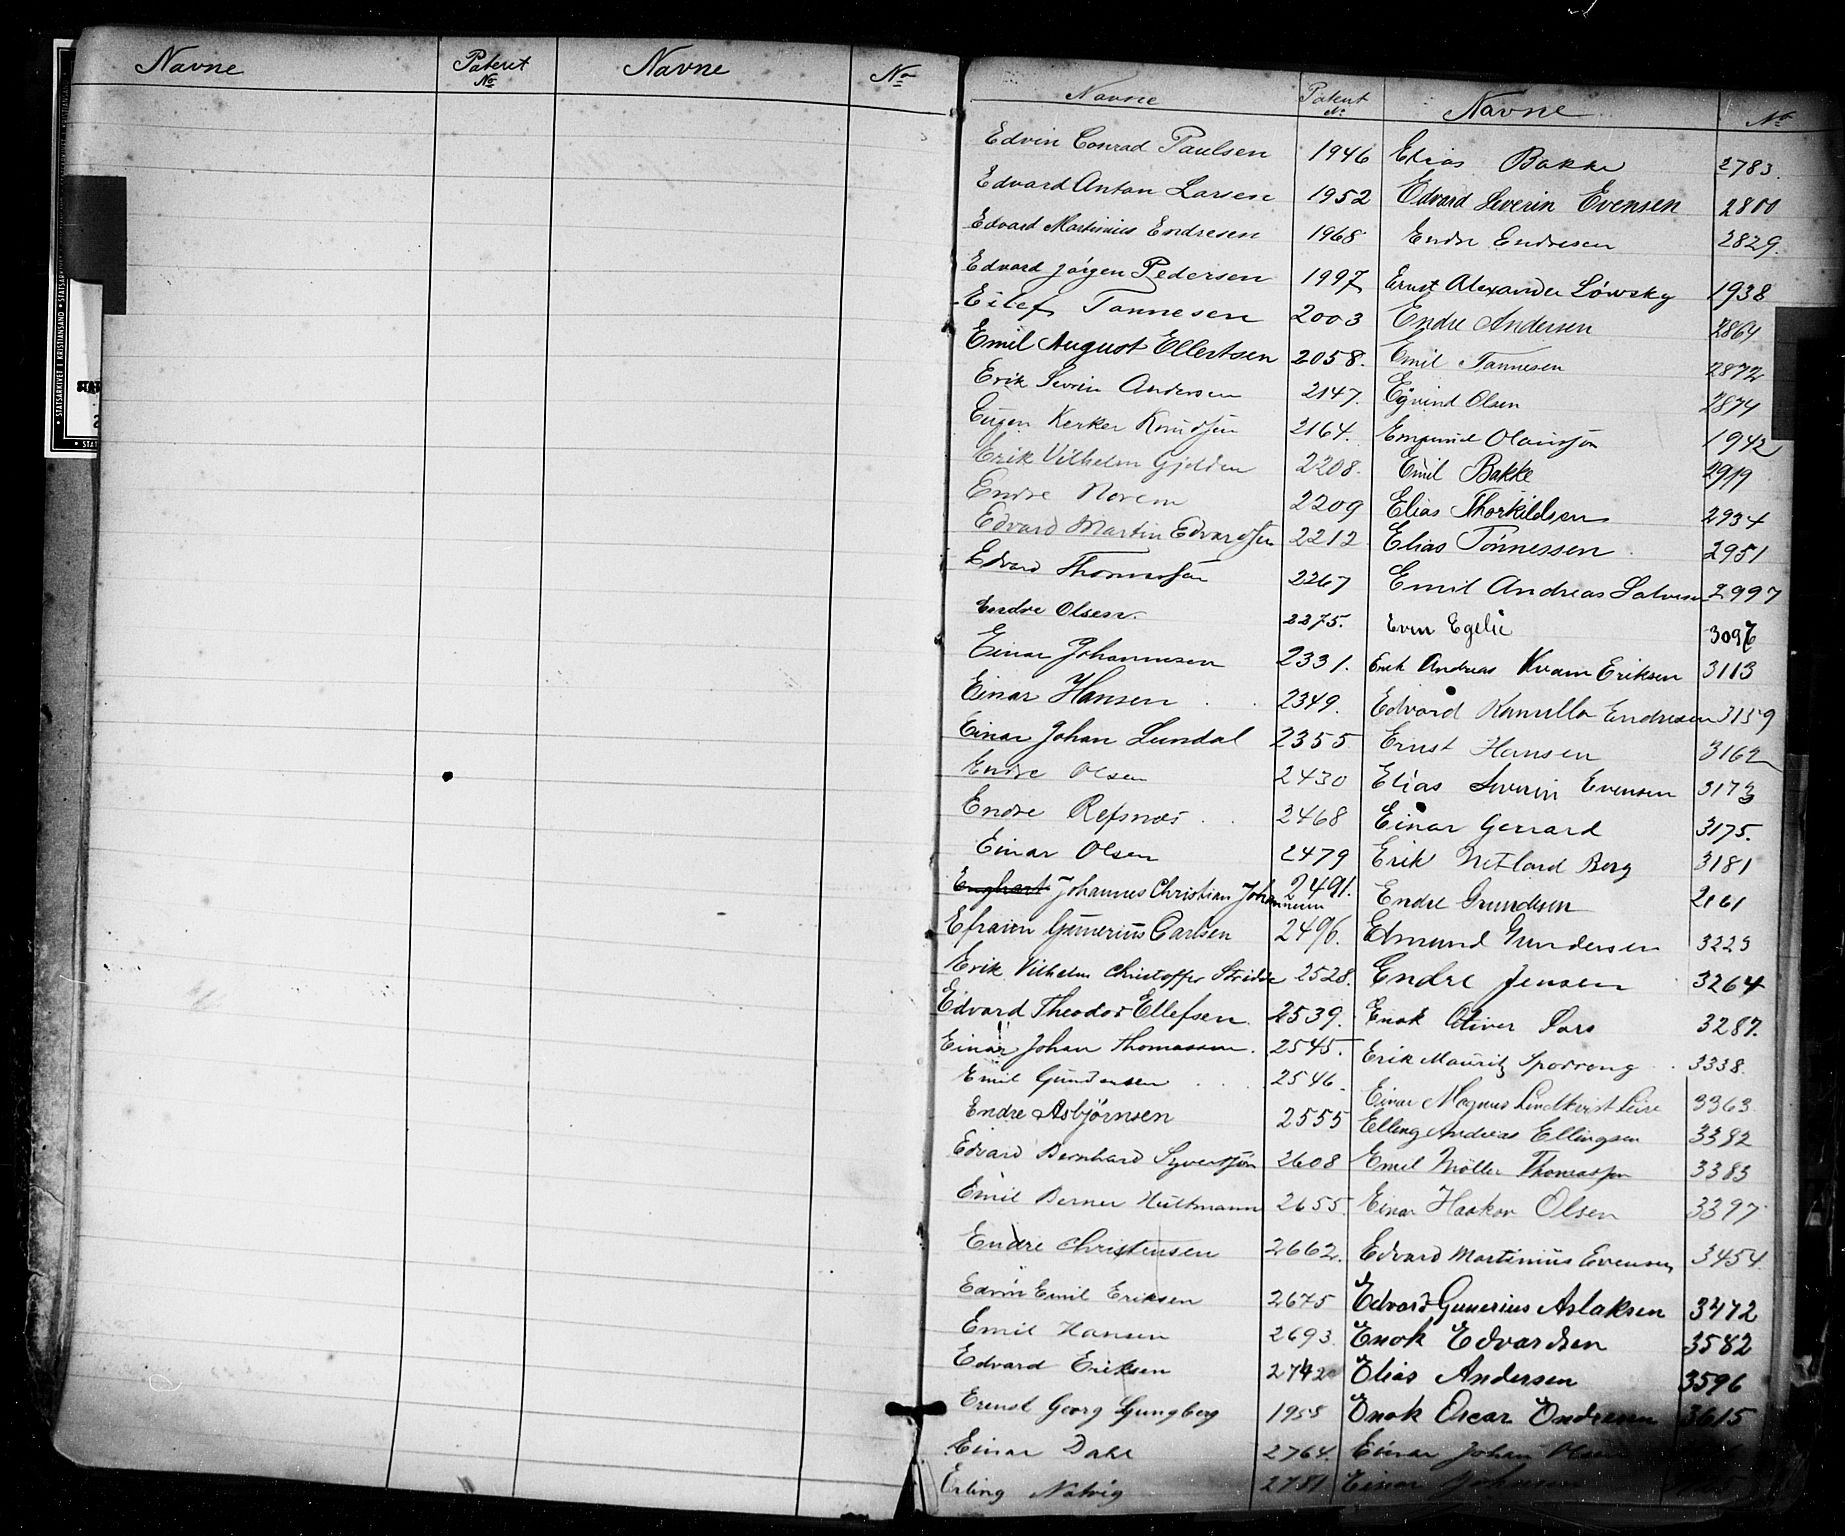 Navne Patent No Navne No
Navne Patent No Navne No
Edvin Conrad Paulsen 1946 Elias Bakke 2783.
Edvard Anton Larsen 1952 Edvard Severin Evensen 2800
Edvard Martinius Endresen 1968 Endre Endresen 2829.
Edvard Jørgen Pedersen 1997 Ernst Alexander 1938
Eilef Tønnesen 2003 Endre Andersen 2864
Emil August Ellertsen 2058. Emil Tønnesen 2872
Erik Sevrin Andersen 2147. Eyvind Olsen 2874
Eugen Kerker Knudsen 2164. 1942
Erik Vilhelm Gjelden 2208. Emil Bakke 2919
Endre Norem 2209 Elias Thorkildsen 2934
Edvard Martin Edvardsen 2212 Elias Tönnessen 2951
Edvard Thomassen 2267 Emil Andreas Salvesen 2997
Endre Olsen. 2275. Even Egelie
Einar Johannesen 2331. Erik Andreas Kvam Eriksen 3113
Einar Hansen 2349. Edvard Endresen 3159
Einar Johan Lundal 2355 Ernst Hansen 3162
Endre Olsen 2430 Elias Severin Evensen 3173
Endre Refsnæs 2468 Einar Gerrard 3175.
Einar Olsen 2479 Erik Netland Berg 3181
Enghart Johannes Christian Johannesen 2491. Endre 2161
Efraim Gunerius Carlsen 2496. Edmund Gundersen 3223
Erik Vilhelm Christoffer 2528. Endre Jensen 3264
Edvard Theodor Ellefsen 2539. Enok Oliver 3287.
Einar Johan Thomassen. 2545. Erik Mauritz Sporrong 3338.
Emil Gundersen 2546. Einar Magnus Lindkvist 3363
Endre Asbjørnsen 2555 Elling Andreas Ellingsen 3382
Edvard Bernhard Syvertsen 2608 Emil Möller Thomassen 3383
Emil Berner Hultmann 2655. Einar Haakon Olsen 3397
Endre Christensen 2662. Edvard Martinius Evensen 3454.
Edvin Emil Eriksen 2675 Edvard Gunerius Aslaksen 3472
Emil Hansen 2693. Enok Edvardsen 3582
Edvard Eriksen 2742 Elias Andersen 3596
Ernst Georg Ljungberg 1955 Enok Oscar Endresen 3615
Einar Dahl 2764. Einar Johan Olsen
Erling Natvig 2781 Einar